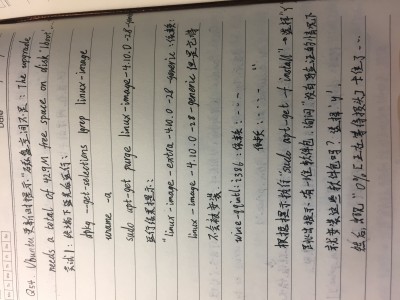 Q54 Ubuntu更新时提示“启磁盘空间不足: The upgrade
needs a total of 429M free space on disk '/boot'...
尝试1: 终端下登录运行:
dpkg --get-selections |grep linux-image
uname -a
sudo apt-get purge linux-image-4.10.0-28-generic
运行结果提示:
"linux-image-extra-4.10.0-28-generic: 依赖:
linux-image-4.10.0-28-generic 但是它将
不会被安装
wine-gentil: i386: 依赖: ....
依赖: .... "
根据提示执行"sudo apt-get -f install", 选择"Y"
再次提示: 有 软件包, 询问"没有验证的情况下
就安装这些软件包吗? 选择'y'.
然后出现"0% [正在等待报头]" 卡住了...